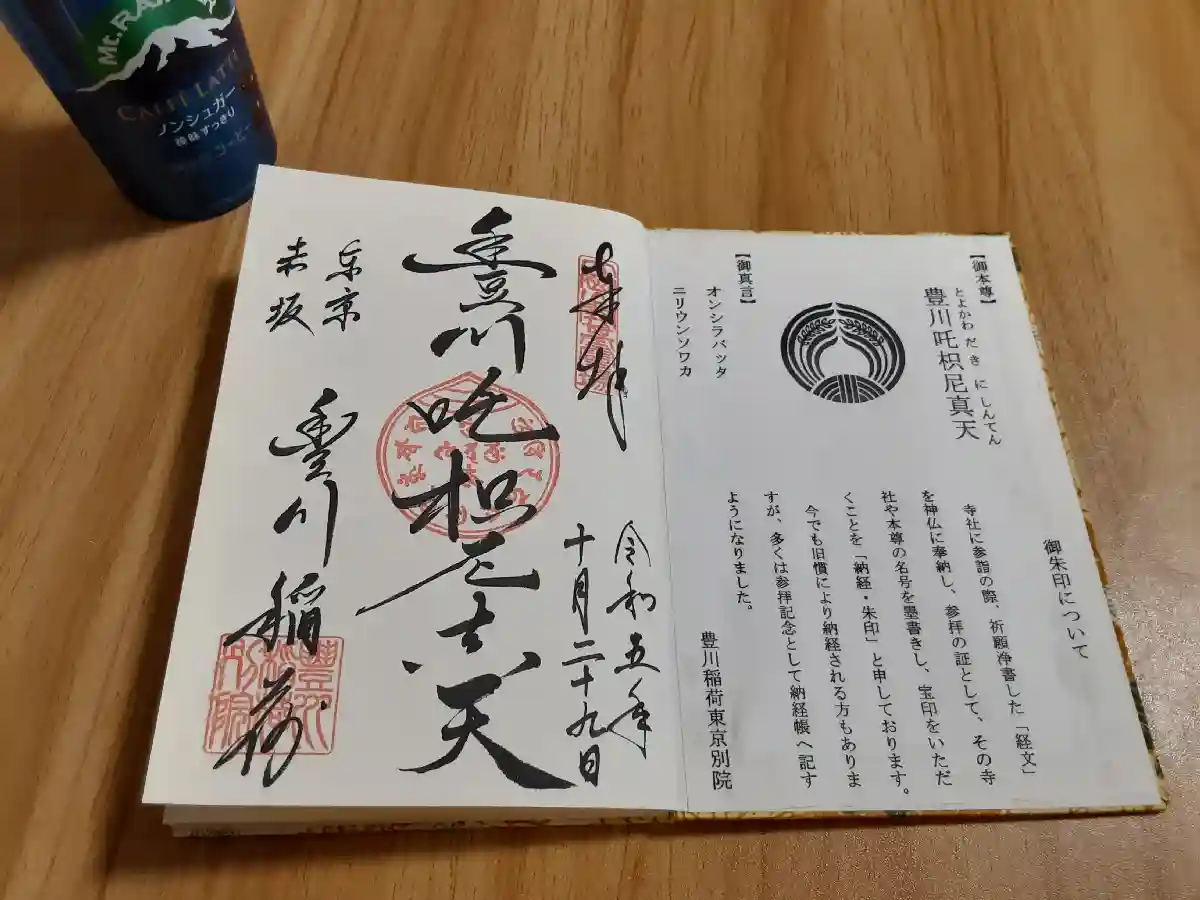 Mt.RAI
CAFFÈ LATTE
ノンシュガー
後味すっきり
コーヒー
御朱印について
【御本尊】
とよかわ だ き に しんてん
豊川吒枳尼真天
【御真言】
オンシラバッタ
ニリウンソワカ
寺社に参詣の際、祈願浄書した「経文」
を神仏に奉納し、参拝の証として、その寺
社や本尊の名号を墨書きし、宝印をいただ
くことを「納経・朱印」と申しております。
今でも旧慣により納経される方もありま
すが、多くは参拝記念として納経帳へ記す
ようになりました。
豊川稲荷東京別院
奉拝
令和五年
十月二十九日
豊川吒枳尼真天
東京
赤坂
豊川稲荷